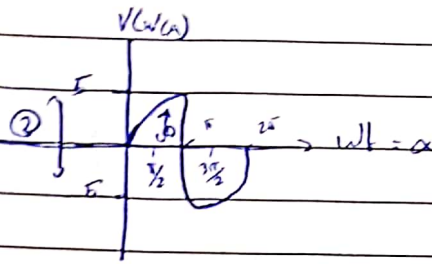 V(w(α)
5
②
π
2π
wt = α
π/2
3π/2
5